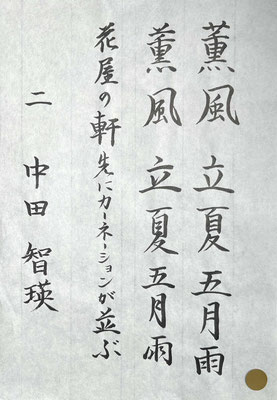 薫風 立夏 五月雨
薫風 立夏 五月雨
花屋の軒先にカーネーションが並ぶ
二 中田 智瑛